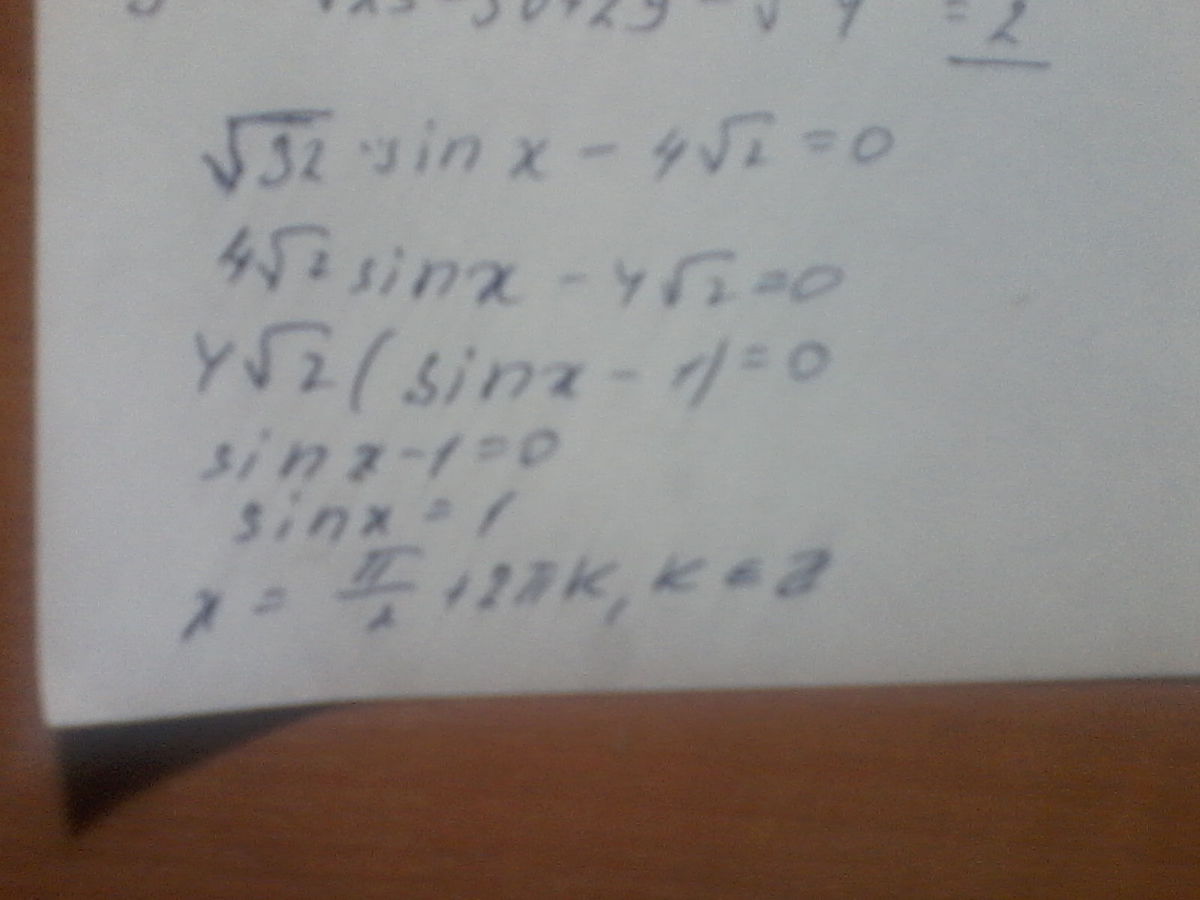 = 2
√32 · sin x - 4√2 = 0
4√2 sin x - 4√2 = 0
4√2 ( sin x - 1) = 0
sin x - 1 = 0
sin x = 1
x = π/2 + 2πk, k ∈ Z